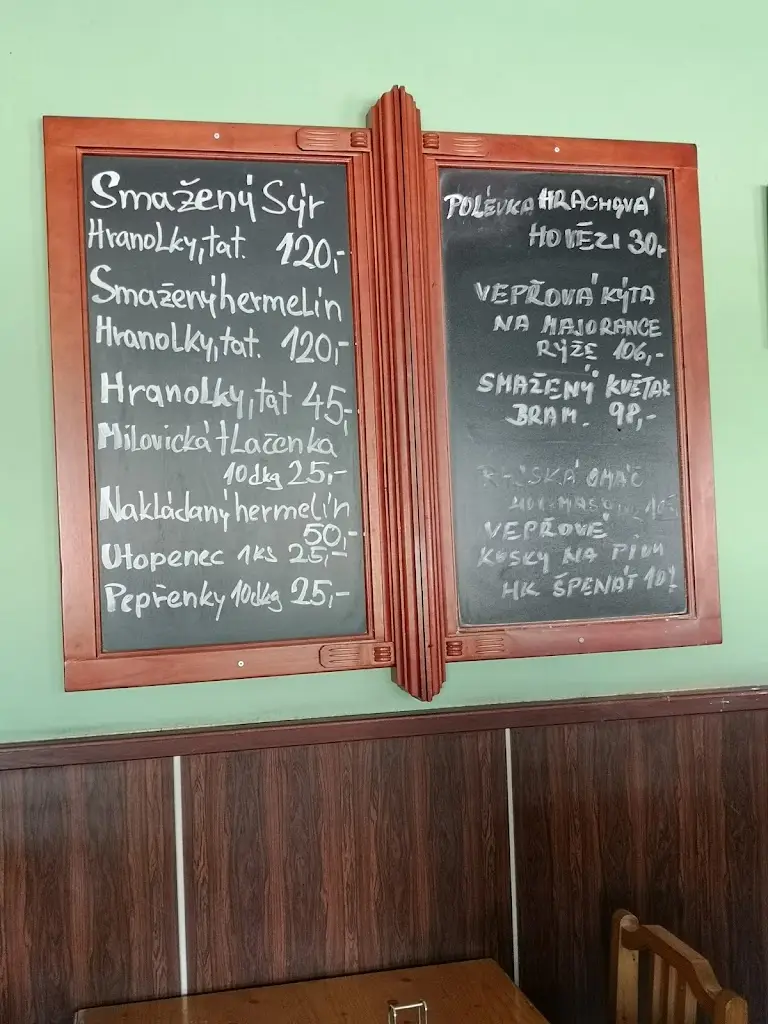 Smažený Sýr
Hranolky, tat. 120,-
Smažený hermelín
Hranolky, tat. 120,-
Hranolky, tat 45,-
Milovická tlačenka
10dkg 25,-
Nakládaný hermelín
50,-
Utopenec 1ks 25,-
Pepřenky 10dkg 25,-
POLÉVKA HRACHOVÁ
HOVĚZI 30,-
VEPŘOVÁ KÝTA
NA MAJORANCE
RÝŽE 106,-
SMAŽENÝ KVĚTAK
BRAM. 98,-
OMÁČ
VEPŘOVÉ
KUSKY NA PIVU
HK ŠPENÁT